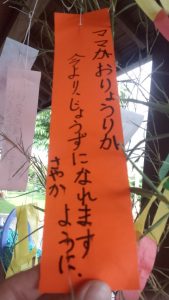 ママがおりょうりが、
今より、じょうずになれます
ように、
さやか